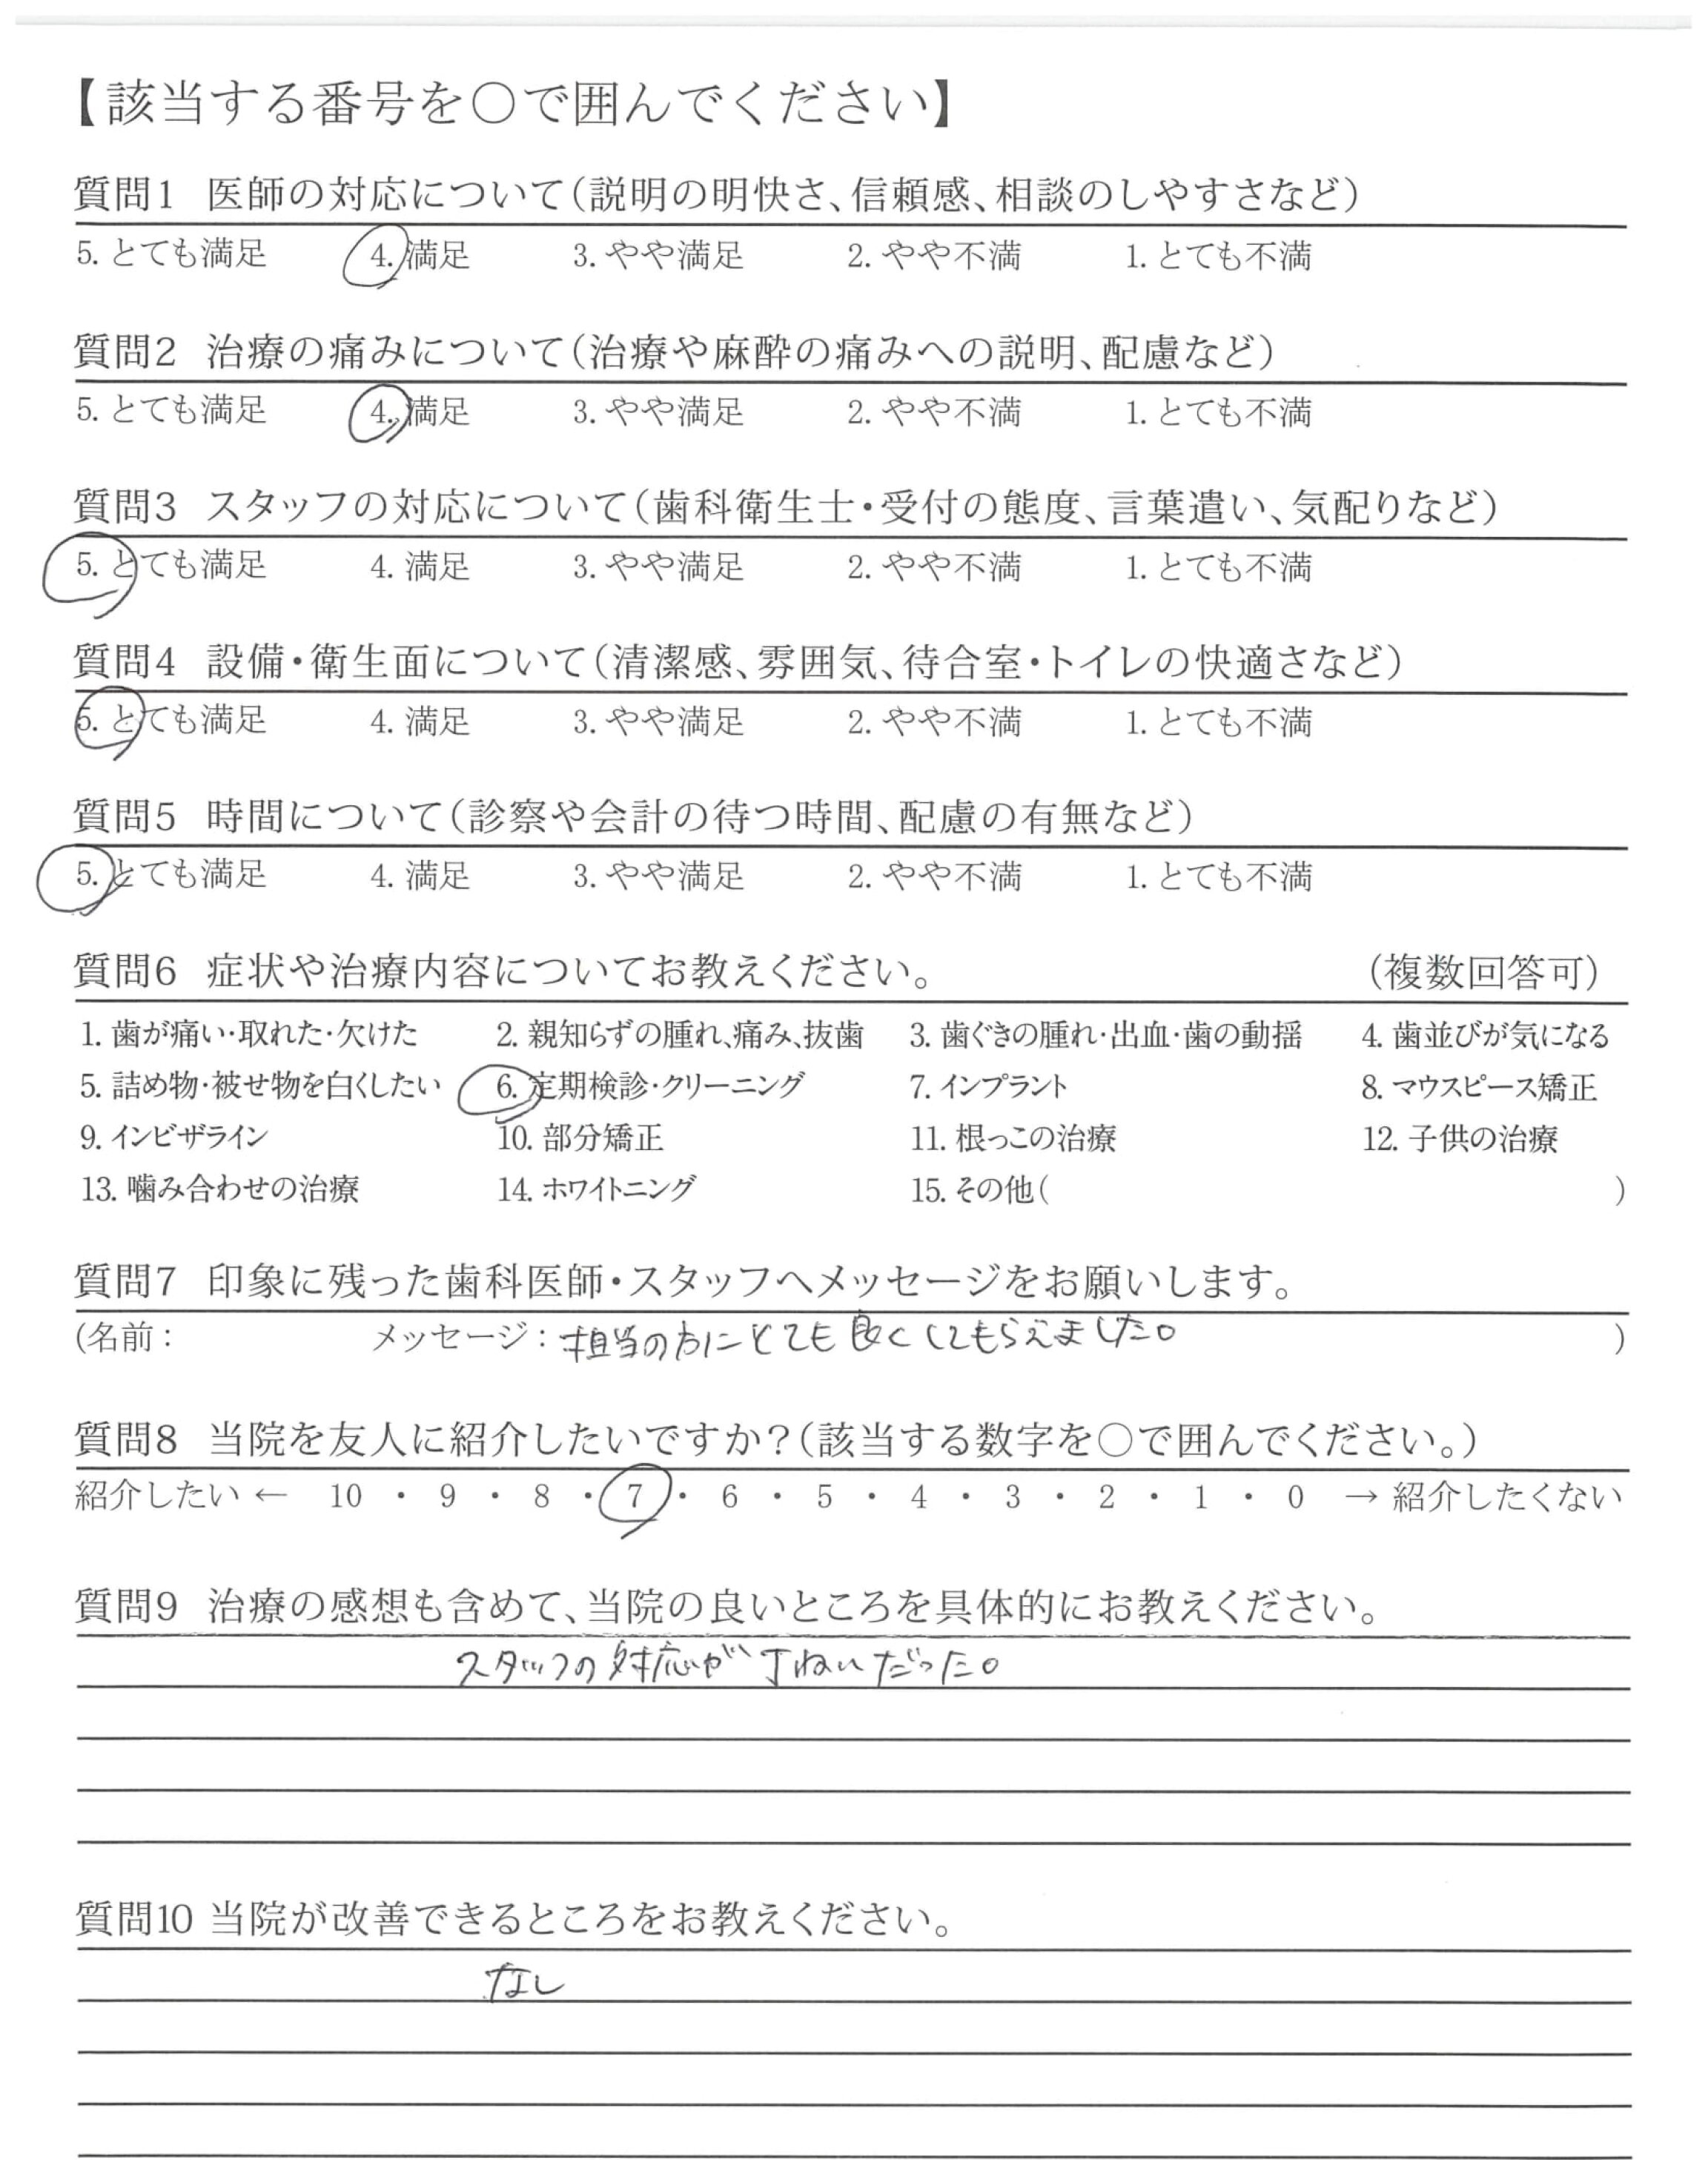 【該当する番号を○で囲んでください】
質問1 医師の対応について(説明の明快さ、信頼感、相談のしやすさなど)
5. とても満足 4. 満足 3. やや満足 2. やや不満 1. とても不満
質問2 治療の痛みについて(治療や麻酔の痛みへの説明、配慮など)
5. とても満足 4. 満足 3. やや満足 2. やや不満 1. とても不満
質問3 スタッフの対応について(歯科衛生士・受付の態度、言葉遣い、気配りなど)
5. とても満足 4. 満足 3. やや満足 2. やや不満 1. とても不満
質問4 設備・衛生面について(清潔感、雰囲気、待合室・トイレの快適さなど)
5. とても満足 4. 満足 3. やや満足 2. やや不満 1. とても不満
質問5 時間について(診察や会計の待つ時間、配慮の有無など)
5. とても満足 4. 満足 3. やや満足 2. やや不満 1. とても不満
質問6 症状や治療内容についてお教えください。 (複数回答可)
1. 歯が痛い・取れた・欠けた 2. 親知らずの腫れ、痛み、抜歯 3. 歯ぐきの腫れ・出血・歯の動揺 4. 歯並びが気になる
5. 詰め物・被せ物を白くしたい 6. 定期検診・クリーニング 7. インプラント 8. マウスピース矯正
9. インビザライン 10. 部分矯正 11. 根っこの治療 12. 子供の治療
13. 噛み合わせの治療 14. ホワイトニング 15. その他( )
質問7 印象に残った歯科医師・スタッフへメッセージをお願いします。
(名前: メッセージ: 担当の方にとても良くしてもらえました。 )
質問8 当院を友人に紹介したいですか?(該当する数字を○で囲んでください。)
紹介したい ← 10 ・ 9 ・ 8 ・ 7 ・ 6 ・ 5 ・ 4 ・ 3 ・ 2 ・ 1 ・ 0 → 紹介したくない
質問9 治療の感想も含めて、当院の良いところを具体的にお教えください。
スタッフの対応が丁ねいだった。
質問10 当院が改善できるところをお教えください。
なし